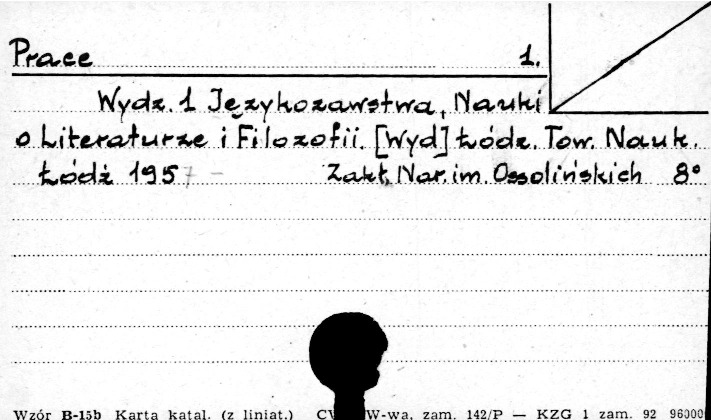 Prace 1.
Wydz. 1 Językozawstwa, Nauki
o Literaturze i Filozofii. [Wyd] Łódz. Tow. Nauk.
Łódź 1957 - Zakł. Nar. im. Ossolińskich 8°
Wzór B-15b Karta katal. (z liniat.) W-wa, zam. 142/P — KZG 1 zam. 92 96000